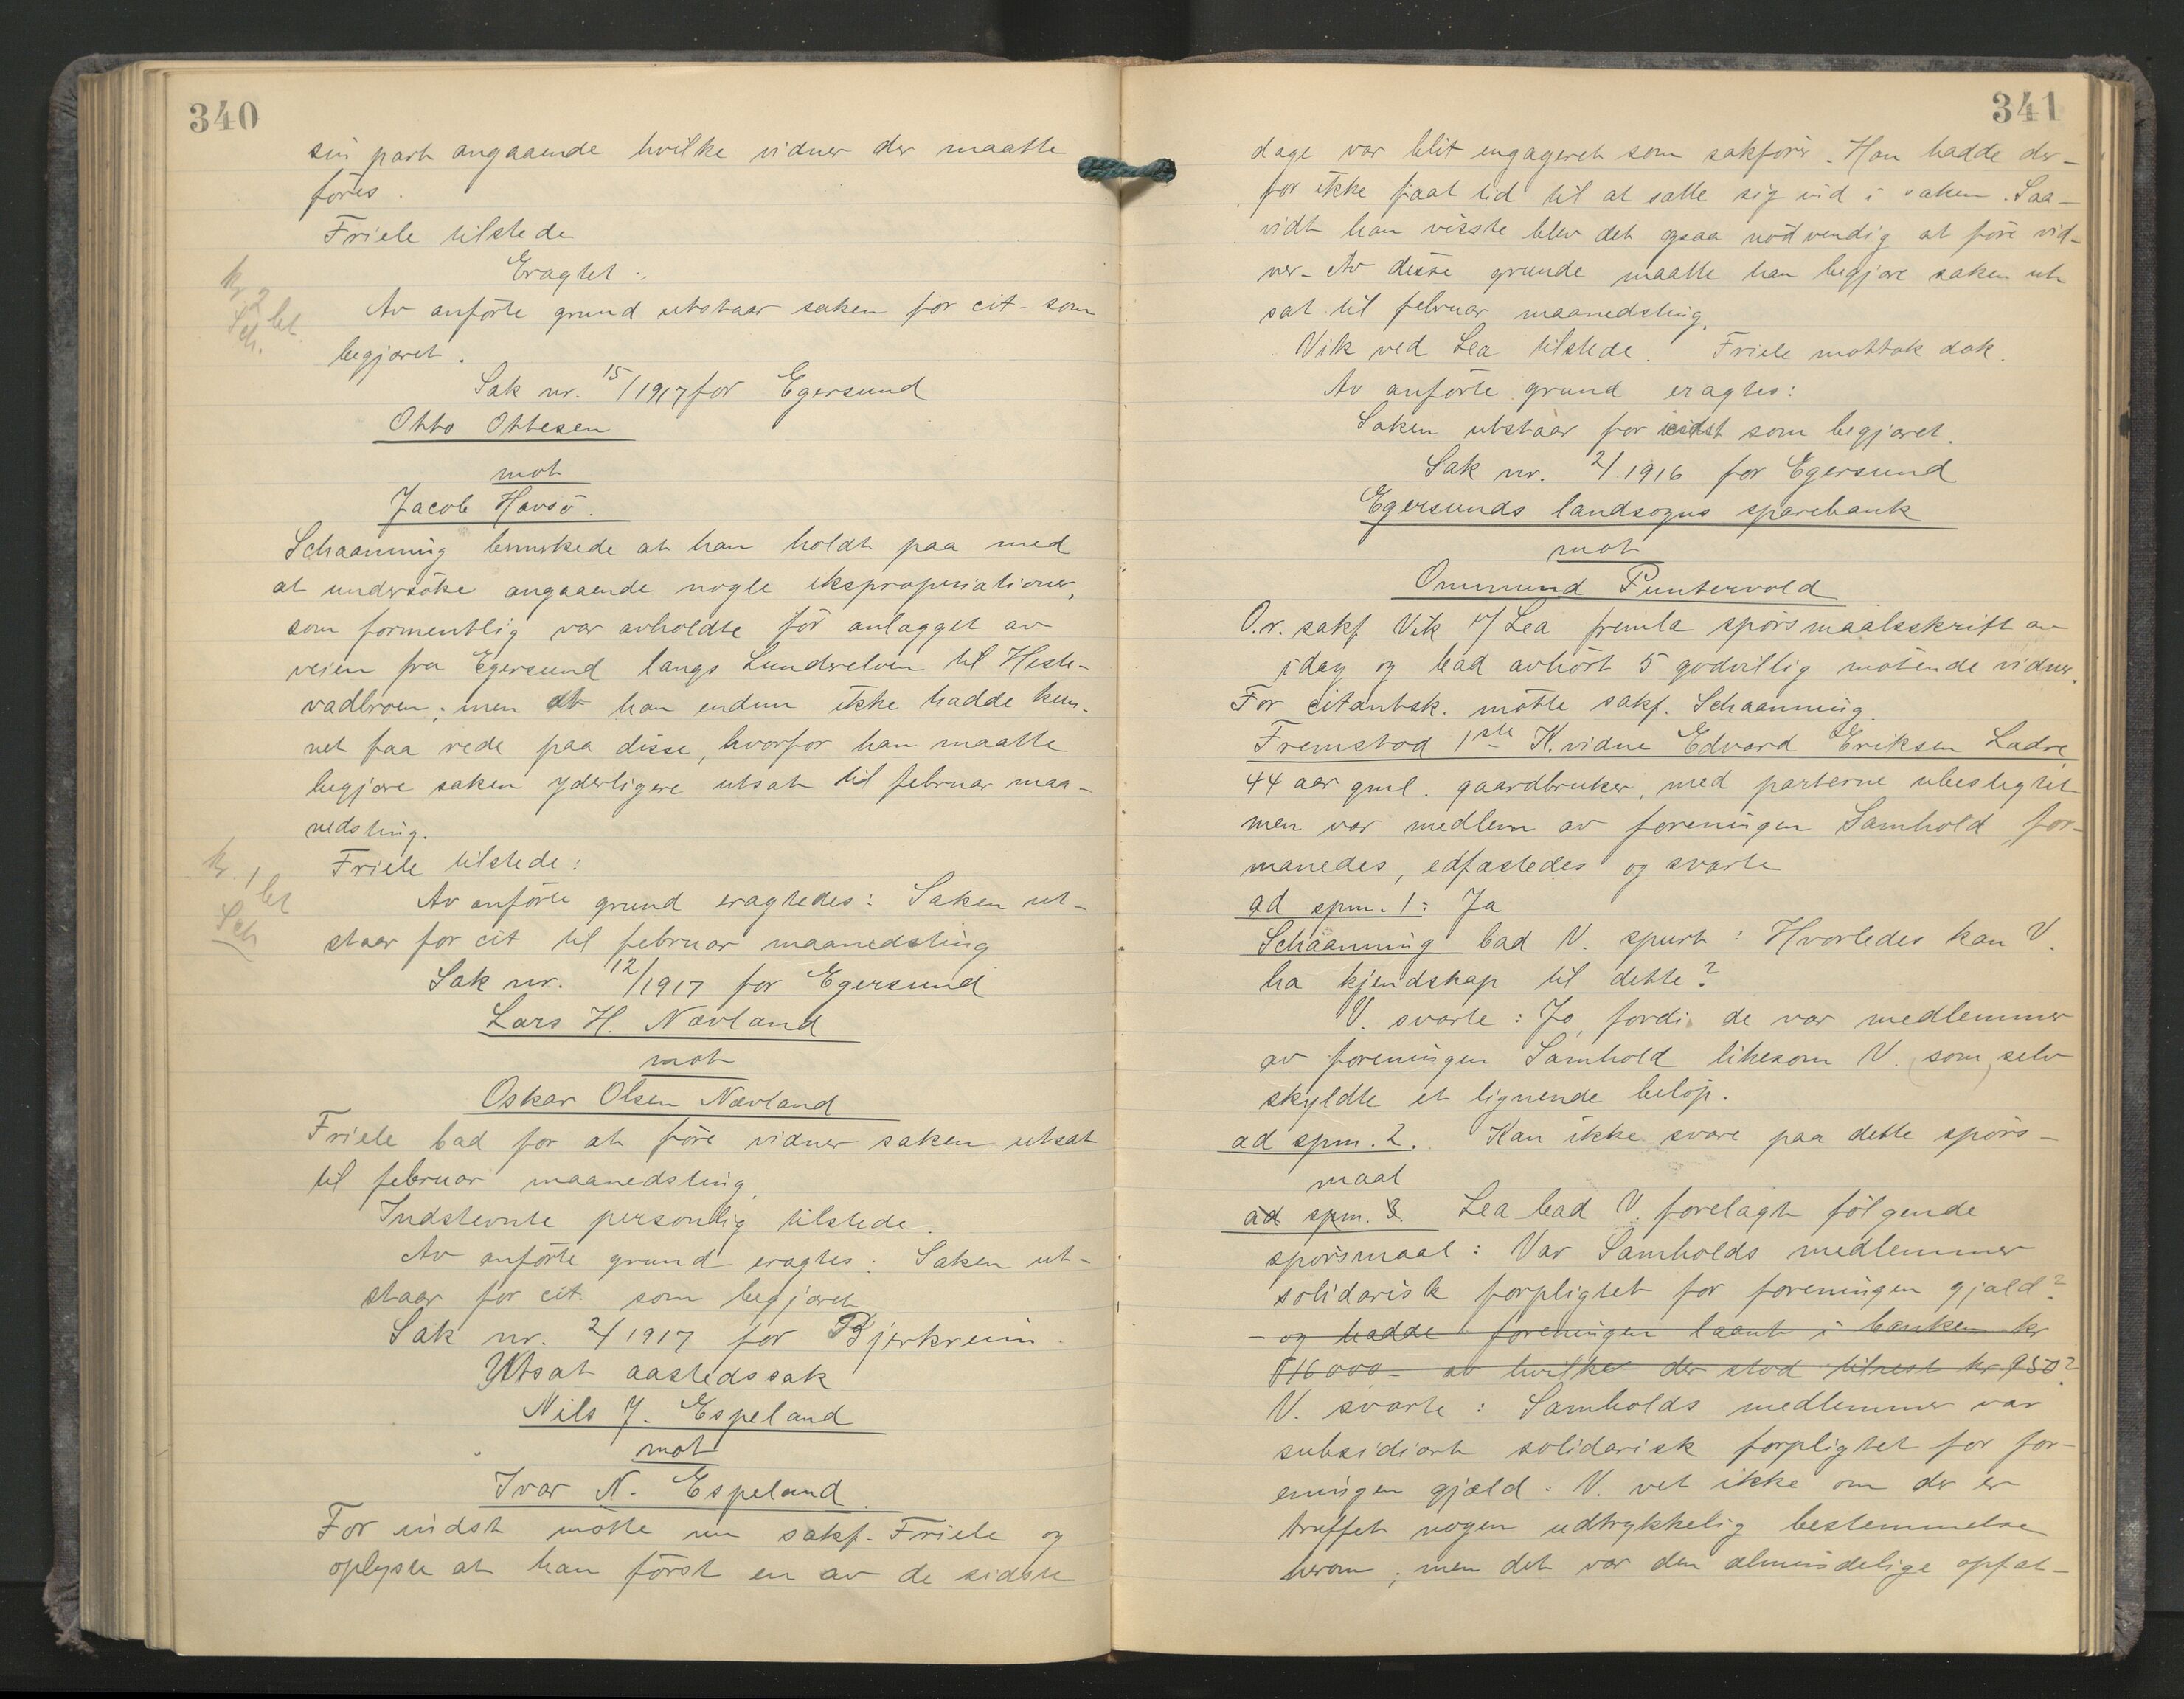 340
sin part angaaende hvilke vidner der maatte
føres.
Friele tilstede
Eragtet:
kr 2 bet.
Sch.
Av anførte grund utstaar saken for cit- som
begjæret.
Sak nr. 15/1917 for Egersund
Otto Ottesen
mot
Jacob Havsø.
Schaanning bemerkede at han holdt paa med
at undersøke angaaende nogle ekspropriationer,
som formentlig var avholdte før anlægget av
veien fra Egersund langs Lundeelven til Heste-
vadbroen; men at han endnu ikke hadde kun-
net faa rede paa disse, hvorfor han maatte
begjære saken yderligere utsat til februar maa-
nedsting.
kr. 1 bet
Sch
Friele tilstede:
Av anførte grund eragtedes: Saken ut-
staar for cit til februar maanedsting
Sak nr. 12/1917 for Egersund
Lars H. Nævland
mot
Oskar Olsen Nævland
Friele bad for at føre vidner saken utsat
til februar maanedsting.
Indstevnte personlig tilstede.
Av anførte grund eragtes: Saken ut-
staar for cit. som begjæret
Sak nr. 2/1917 for Bjerkreim.
Utsat aastedssak
Nils J. Espeland
mot
Ivar N. Espeland.
For indst møtte nu sakf. Friele og
oplyste at han først en av de sidste
341
dage var blit engageret som sakfører. Han hadde der-
for ikke faat tid til at sætte sig ind i saken. Saa-
vidt han visste blev det ogsaa nødvendig at føre vid-
ner. Av disse grunde maatte han begjære saken ut
sat til februar maanedsting.
Vik ved Lea tilstede. Friele mottok dok.
Av anførte grund eragtes:
Saken utstaar for indst som begjæret.
Sak nr. 2/1916 for Egersund
Egersunds landsogns sparebank
mot
Ommund Puntervold
O.r. sakf. Vik v/ Lea fremla spørsmaalsskrift av
idag og bad avhørt 5 godvillig møtende vidner.
For citantsk. møtte sakf. Schaanning.
Fremstod 1ste K.vidne Edvard Eriksen Ladre,
44 aar gml. gaardbruker, med parterne ubeslegtet
men var medlem av foreningen Samhold, for-
manedes, edfæstedes og svarte
ad spm. 1: Ja
Schaanning bad V. spurt: Hvorledes kan V.
ha kjendskap til dette?
V. svarte: Jo, fordi de var medlemmer
av foreningen Samhold likesom V. (som) selv
skyldte et lignende beløp.
ad spm. 2. Kan ikke svare paa dette spørs-
maal
ad spm. 3. Lea bad V. forelagt følgende
spørsmaal: Var Samholds medlemmer
solidarisk forpligtet for foreningen gjæld?
- og hadde foreningen laant i banken kr
16000 - av hvilke der stod tilrest kr 950?
V. svarte: Samholds medlemmer var
subsidiært solidarisk forpligtet for for-
eningen gjæld. V. vet ikke om der er
truffet nogen udtrykkelig bestemmelse
herom; men det var den almindelige opfat-